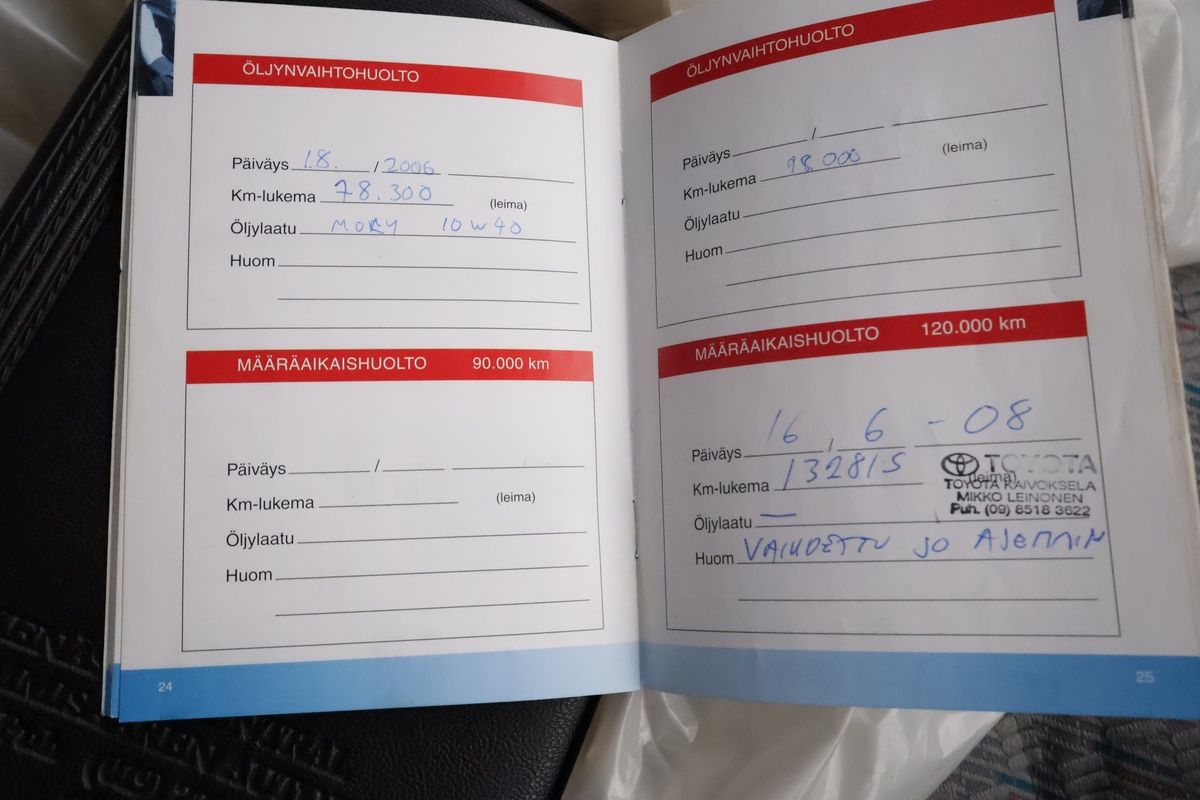 ÖLJYNVAIHTOHUOLTO
Päiväys 1.8. / 2006
Km-lukema 78.300
(leima)
Öljylaatu MOKY 10W40
Huom
MÄÄRÄAIKAISHUOLTO 90.000 km
Päiväys /
Km-lukema
(leima)
Öljylaatu
Huom
24
ÖLJYNVAIHTOHUOLTO
Päiväys /
Km-lukema 98.000
(leima)
Öljylaatu
Huom
MÄÄRÄAIKAISHUOLTO 120.000 km
Päiväys 16 / 6 - 08
Km-lukema 132815
(leima)
TOYOTA
TOYOTA KAIVOKSELA
MIKKO LEINONEN
Puh. (09) 8518 3622
Öljylaatu —
Huom VAIHDETTU JO AJEMMIN
25